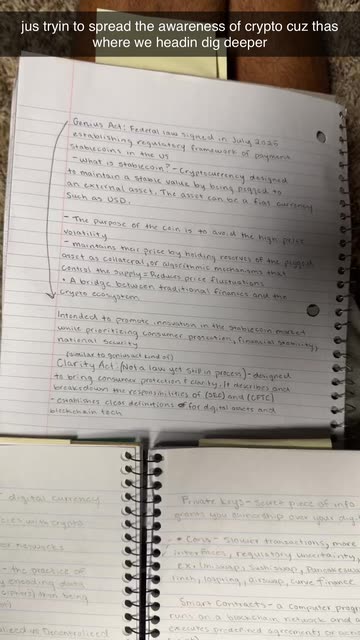 jus tryin to spread the awareness of crypto cuz thas
where we headin dig deeper
Genius Act: Federal law signed in July 2025
establishing regulatory framework of payment
stablecoins in the US
- What is stablecoin? - Cryptocurrency designed
to maintain a stable value by being pegged to
an external asset. The asset can be a fiat currency
such as USD.
- The purpose of the coin is to avoid the high price
volatility
- maintains their price by holding reserves of the pegged
asset as collateral, or algorithmic mechanisms that
control the supply = Reduces price fluctuations
• A bridge between traditional finances and the
crypto ecosystem
Intended to promote innovation in the stablecoin market
while prioritizing consumer protection, financial stability,
national security
(similar to genius act kind of)
Clarity Act: (Not a law yet still in process) - designed
to bring consumer protection & clarity. It describes and
breaksdown the responsibilities of (SEC) and (CFTC)
- establishes clear definitions for digital assets and
blockchain tech
digital currency
with crypto
- the practice of
encoding data
being
Private keys - Secret piece of info
grants you ownership over your dig
• Cons - Slower transactions, more
interfaces, regulatory uncertainty
Sushiswap, Pancakeswap
curve finance
Smart Contracts - a computer prog
runs on a blockchain network and
executes agreements or